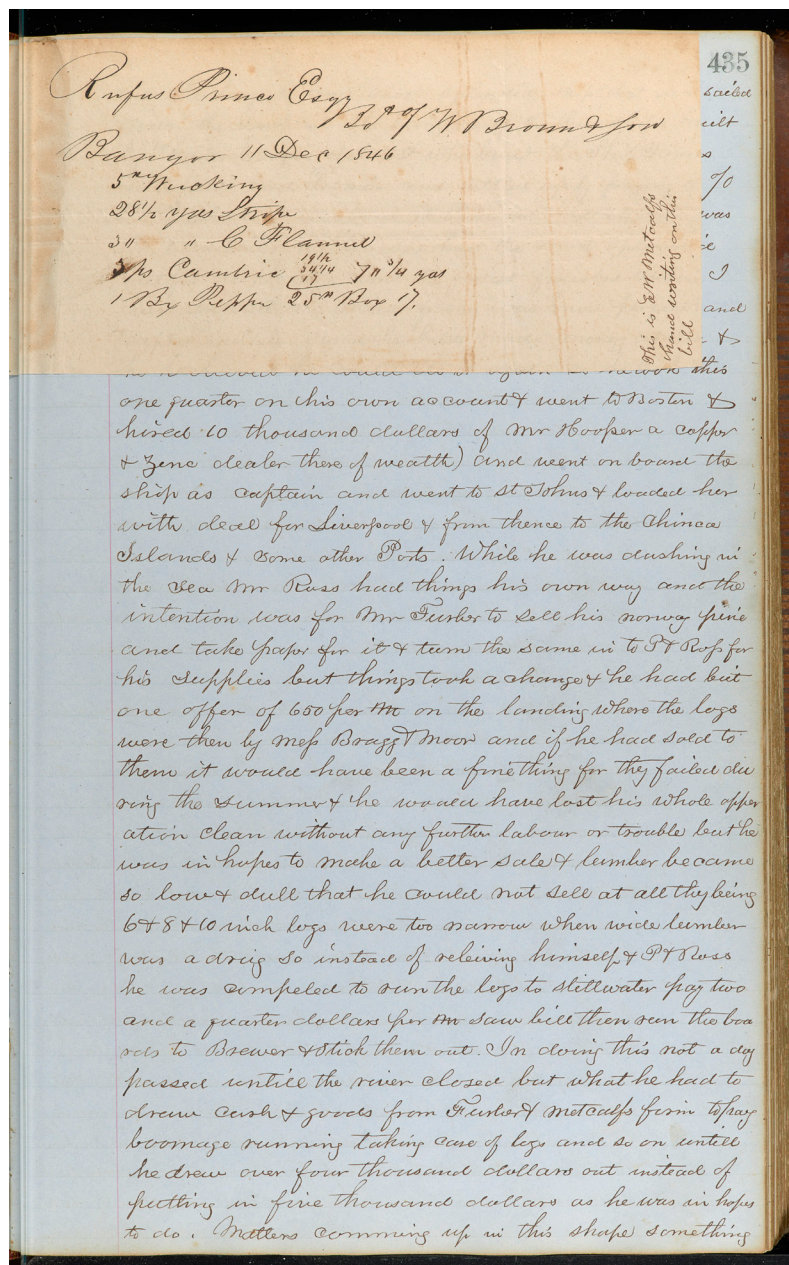 435
Rufus Prince Esqr
Bot of W Brown & Son
Bangor 11 Dec 1846
28 1/2 yds Stripe
3 " " C Flannel
3 ps Cambric 19 1/2 34 1/4 17 70 3/4 yds
1 Bx Pepper 25 Box 17.
This is E W Metcalfs
hand writing on this
bill
sailed
uilt
s
%
was
I
and
&
this
one quarter on his own account & went to Boston &
hired 10 thousand dollars of Mr Hooper a copper
& Zenc dealer there of wealth) and went on board the
ship as captain and went to St Johns & loaded her
with deal for Liverpool & from thence to the Chinca
Islands & some other Ports. While he was dashing in
the sea Mr Ross had things his own way and the
intention was for Mr Furber to sell his norway pine
and take paper for it & turn the same in to P & Ross for
his supplies but things took a change & he had but
one offer of 650 per M on the landing where the logs
were then by Mess Bragg & Moor and if he had sold to
them it would have been a fine thing for they failed du
ring the summer & he would have lost his whole opper
ation clean without any further labour or trouble but he
was in hopes to make a better sale & lumber became
so low & dull that he could not sell at all they being
6 & 8 & 10 inch logs were two narrow when wide lumber
was a drug so instead of releiving himself & P & Ross
he was compeled to run the logs to stillwater pay two
and a quarter dollars per M saw bill then run the boa
rds to Brewer & stick them out. In doing this not a day
passed untill the river closed but what he had to
draw cash & goods from Furber & Metcalfs firm to pay
boomage running taking care of logs and so on untill
he drew over four thousand dollars out instead of
putting in five thousand dollars as he was in hopes
to do. Matters comming up in this shape something